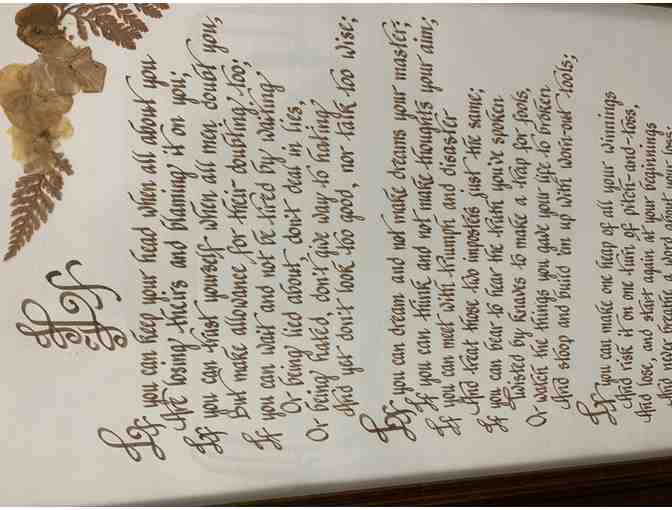 If
If you can keep your head when all about you
Are losing theirs and blaming it on you;
If you can trust yourself when all men doubt you,
But make allowance for their doubting too;
If you can wait and not be tired by waiting,
Or being lied about, don't deal in lies,
Or being hated, don't give way to hating,
And yet don't look too good, nor talk too wise;
If you can dream and not make dreams your master;
If you can think and not make thoughts your aim;
If you can meet with triumph and disaster
And treat those two imposters just the same;
If you can bear to hear the truth you've spoken
Twisted by knaves to make a trap for fools,
Or watch the things you gave your life to broken
And stoop and build 'em up with worn-out tools;
If you can make one heap of all your winnings
And risk it on one turn of pitch-and-toss,
And lose, and start again at your beginnings